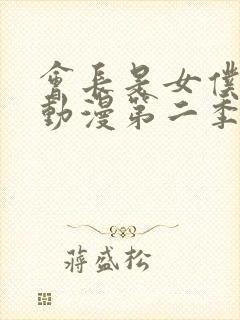 會長是女僕
動漫第二季
蔣盛松